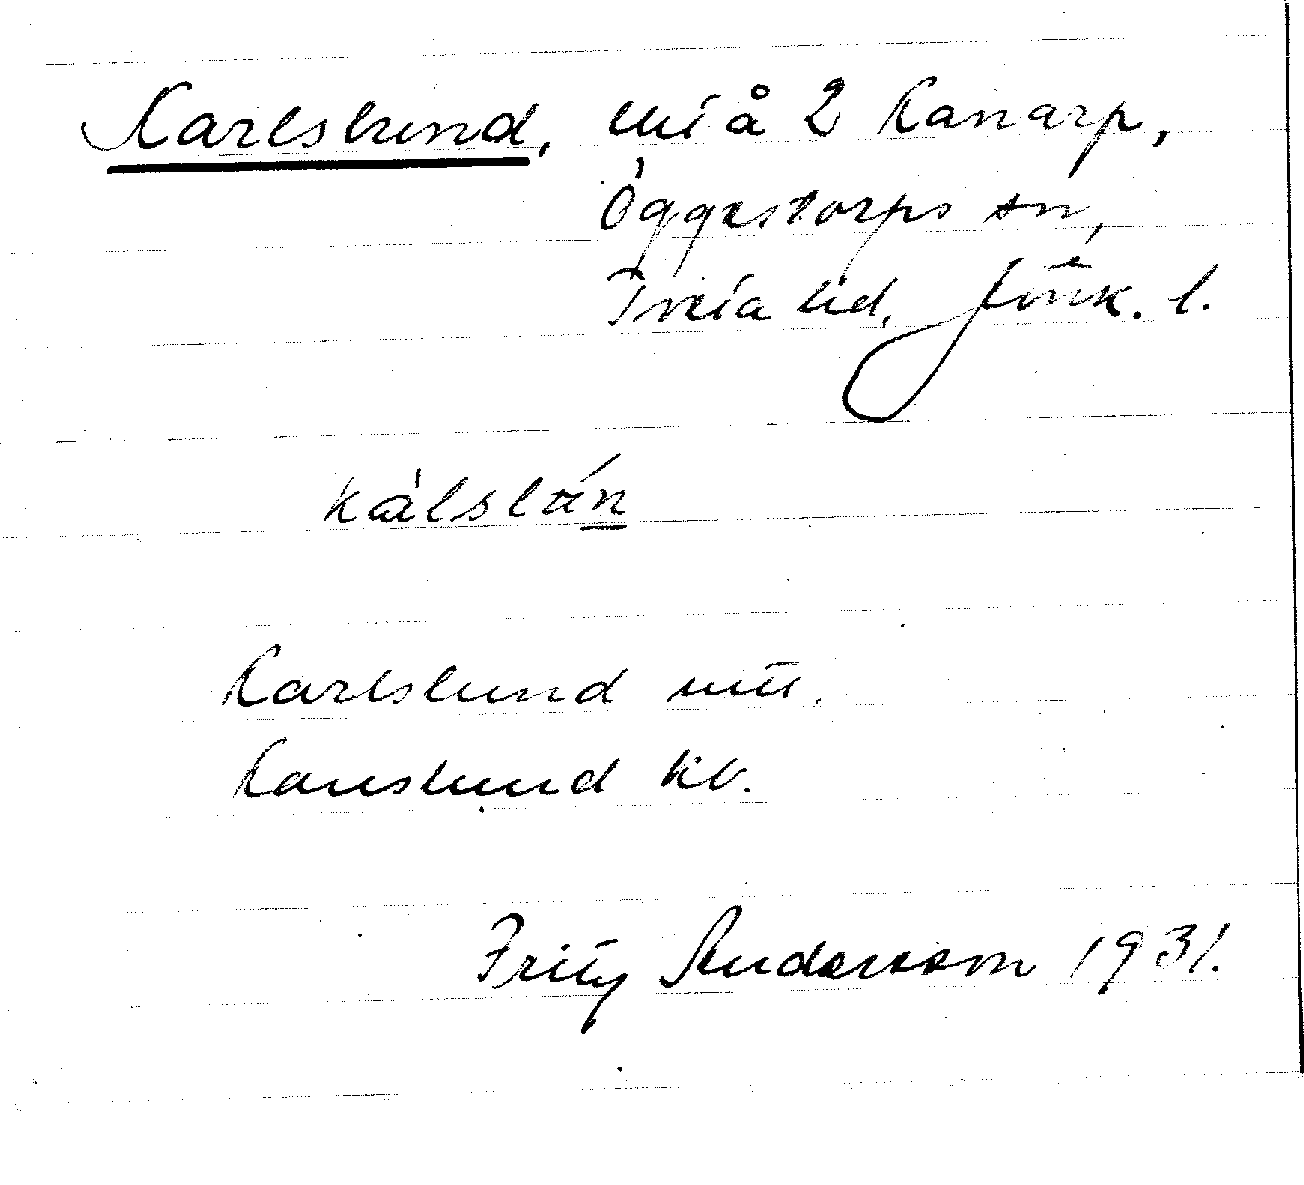 Karlslund, uti å 2 Kanarp,
Öggestorps sn,
Tveta hd, Jönk. l.
Karlslund mtl.
Karlslund kb.
Fritz Andersson 1931.